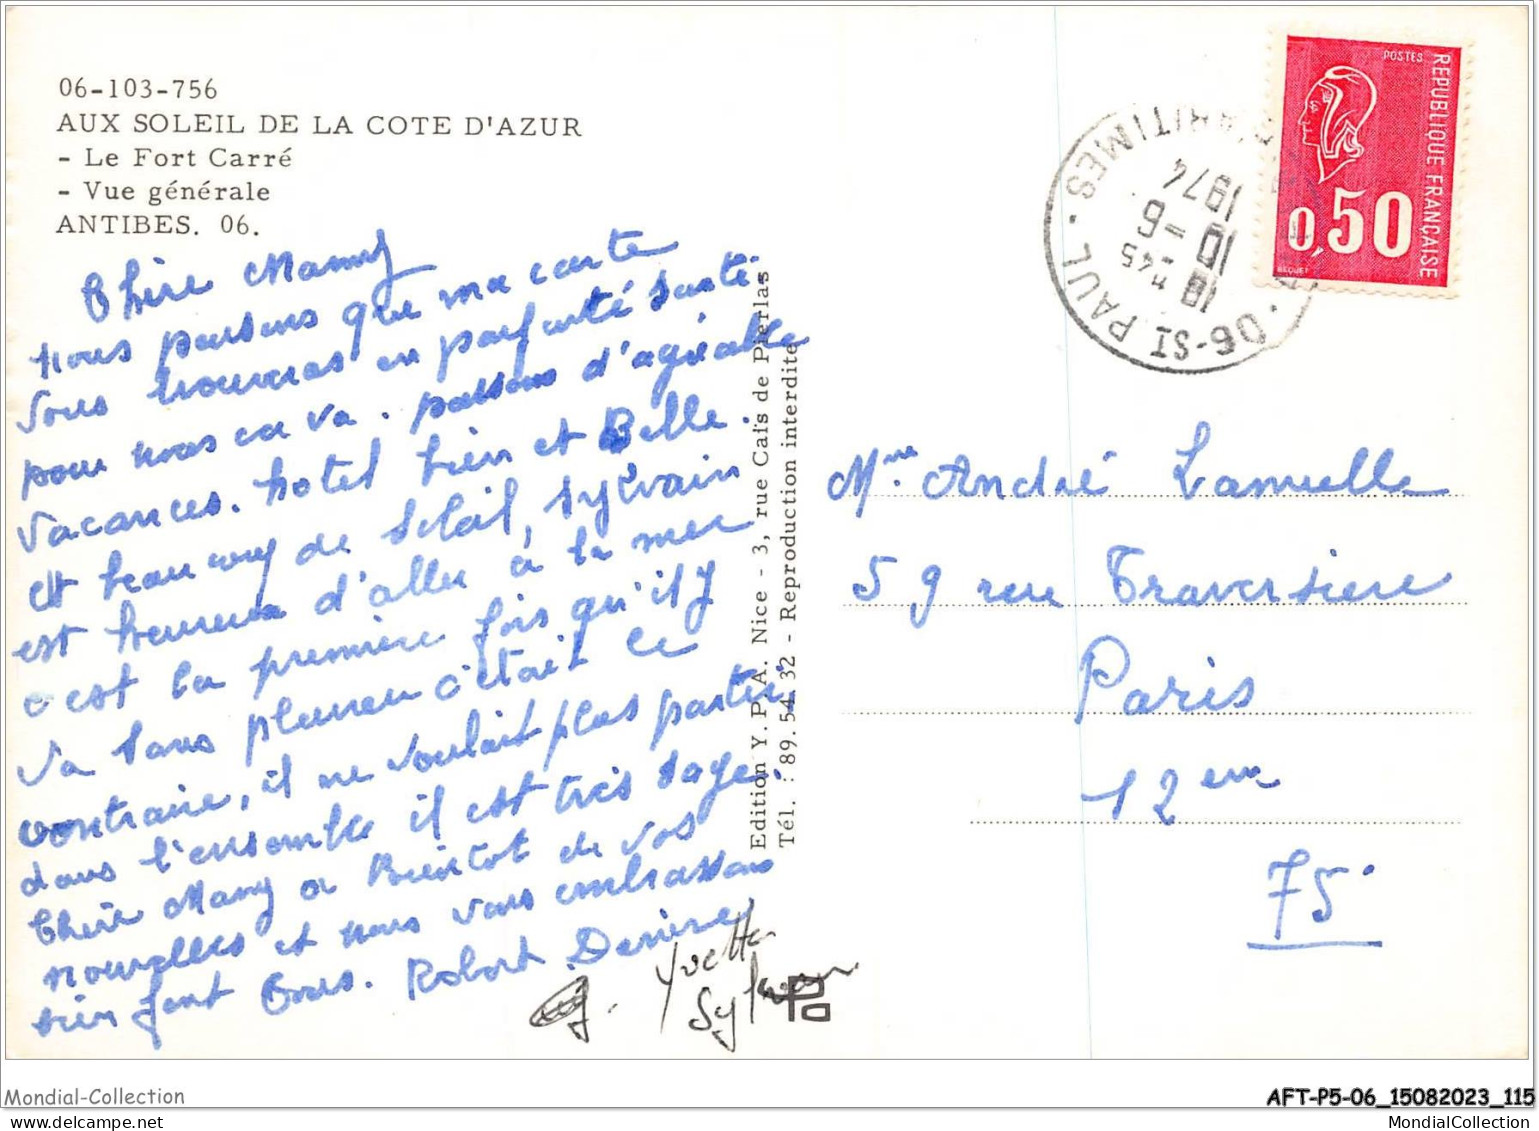 06-103-756
AUX SOLEIL DE LA COTE D'AZUR
- Le Fort Carré
- Vue générale
ANTIBES. 06.
Chère Mamy
nous pensons que ma carte
vous trouveras en parfaite santé.
pour nous ca va. passons d'agréable
vacances. hotel bien et Belle.
et beaucoup de soleil, Sylvain
est heureux d'aller à la mer
c'est la première fois qu'il y
va sans pleurer c'était le
contraire, il ne voulait plus partir,
dans l'ensemble il est très sage.
Chère Mamy a Bientot de vos
nouvelles et nous vous embrassons
bien fort Tous. Robert Denise
Yvette
Sylvain
Edition Y. P. A. Nice - 3, rue Caïs de Pierlas
Tél. : 89.54.32 - Reproduction interdite
POSTES
REPUBLIQUE FRANÇAISE
0,50
BEQUET
06-ST PAUL
MARITIMES
18 H 45
10 - 6
1974
Mme André Lamielle
59 rue Traversière
Paris
12em
75
Mondial-Collection
AFT-P5-06_15082023_115
MondialCollection